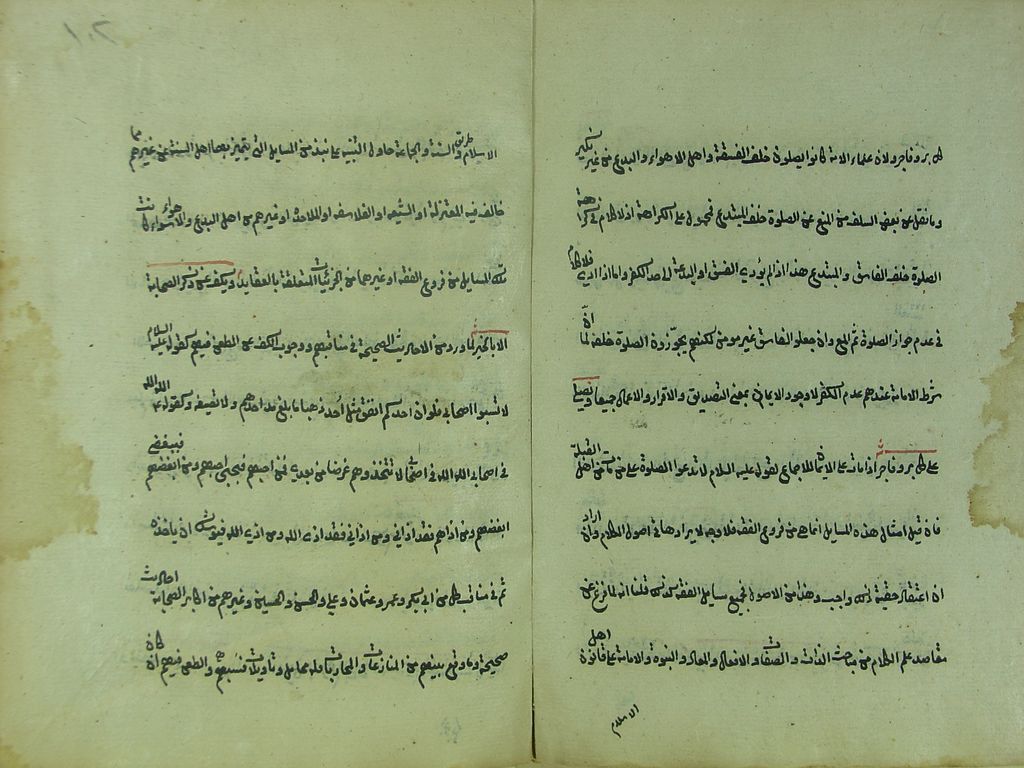 كل بر وفاجر ولان علماء الامة كانوا يصلون خلف الفسقة واهل الاهواء والبدع من غير نكير
وما نقل عن بعض السلف من المنع عن الصلوة خلف المبتدع فمحمول على الكراهة اذ لا كلام في كراهة
الصلوة خلف الفاسق والمبتدع هذا اذا لم يؤدي الفسق او البدعة لاحد الكفر واما اذا ادي فلا كلام
في عدم جواز الصلوة ثم المع وان جعلوا الفاسق غير مومن لكنهم يجوّزون الصلوة خلفه لما انّ
شرط الامامة عندهم عدم الكفر لا وجود الايمان بمعنى التصديق والاقرار والاعمال جميعا ويصلى
على كل بر وفاجر اذا مات على الايمان للاجماع لقوله عليه السلام لا تدعوا الصلوة على من مات من اهل القبلة
فان قيل امثال هذه المسايل انما هي من فروع الفقه فلا وجه لايرادها في اصول الكلام وان اراد
ان اعتقاد حقية ذلك واجب وهذا من الاصول فجميع مسايل الفقه كذلك قلنا انه لما فرغ عن
مقاصد علم الكلام من مباحث الذات والصفات والافعال والمعاد والنبوة والامامة على قانون اهل
الاسلام
الاسلام وطريق السنة والجماعة حاول التنبيه على نبذ من المسايل التى يتميز بها اهل السنة عن غيرهم مما
خالف فيه المعتزلة او الشيعه او الفلاسفه او الملاحده او غيرهم من اهل البدع والاهواء كانت
تلك المسايل من فروع الفقه او غيرهما من الجزئيات المتعلقة بالعقايد ويكف عن ذكر الصحابة
الا بالخير لما ورد من الاحاديث الصحيحة في مناقبهم ووجوب الكف عن الطعن فيهم كقوله عليه السلام
لا تسبوا اصحابي فلو ان احدكم انفق مثل أحد ذهبا ما بلغ مد احدهم ولا نصيفه وكقوله ع الله الله
في اصحابي الله الله في اصحابي لا تتخذوهم غرضا من بعدي فمن احبهم فبحبي احبهم ومن ابغضهم فببغضي
ابغضهم ومن اذاهم فقد اذاني ومن اذاني فقد اذى الله ومن اذى الله فيوشك ان ياخذه
ثم في مناقب كل من ابي بكر وعمر وعثمان وعلي والحسن والحسين وغيرهم من اكابر الصحابة احاديث
صحيحة وما وقع بينهم من المنازعات والمحاربات فله محامل وتاويلات فسبهم والطعن فيهم ان كان